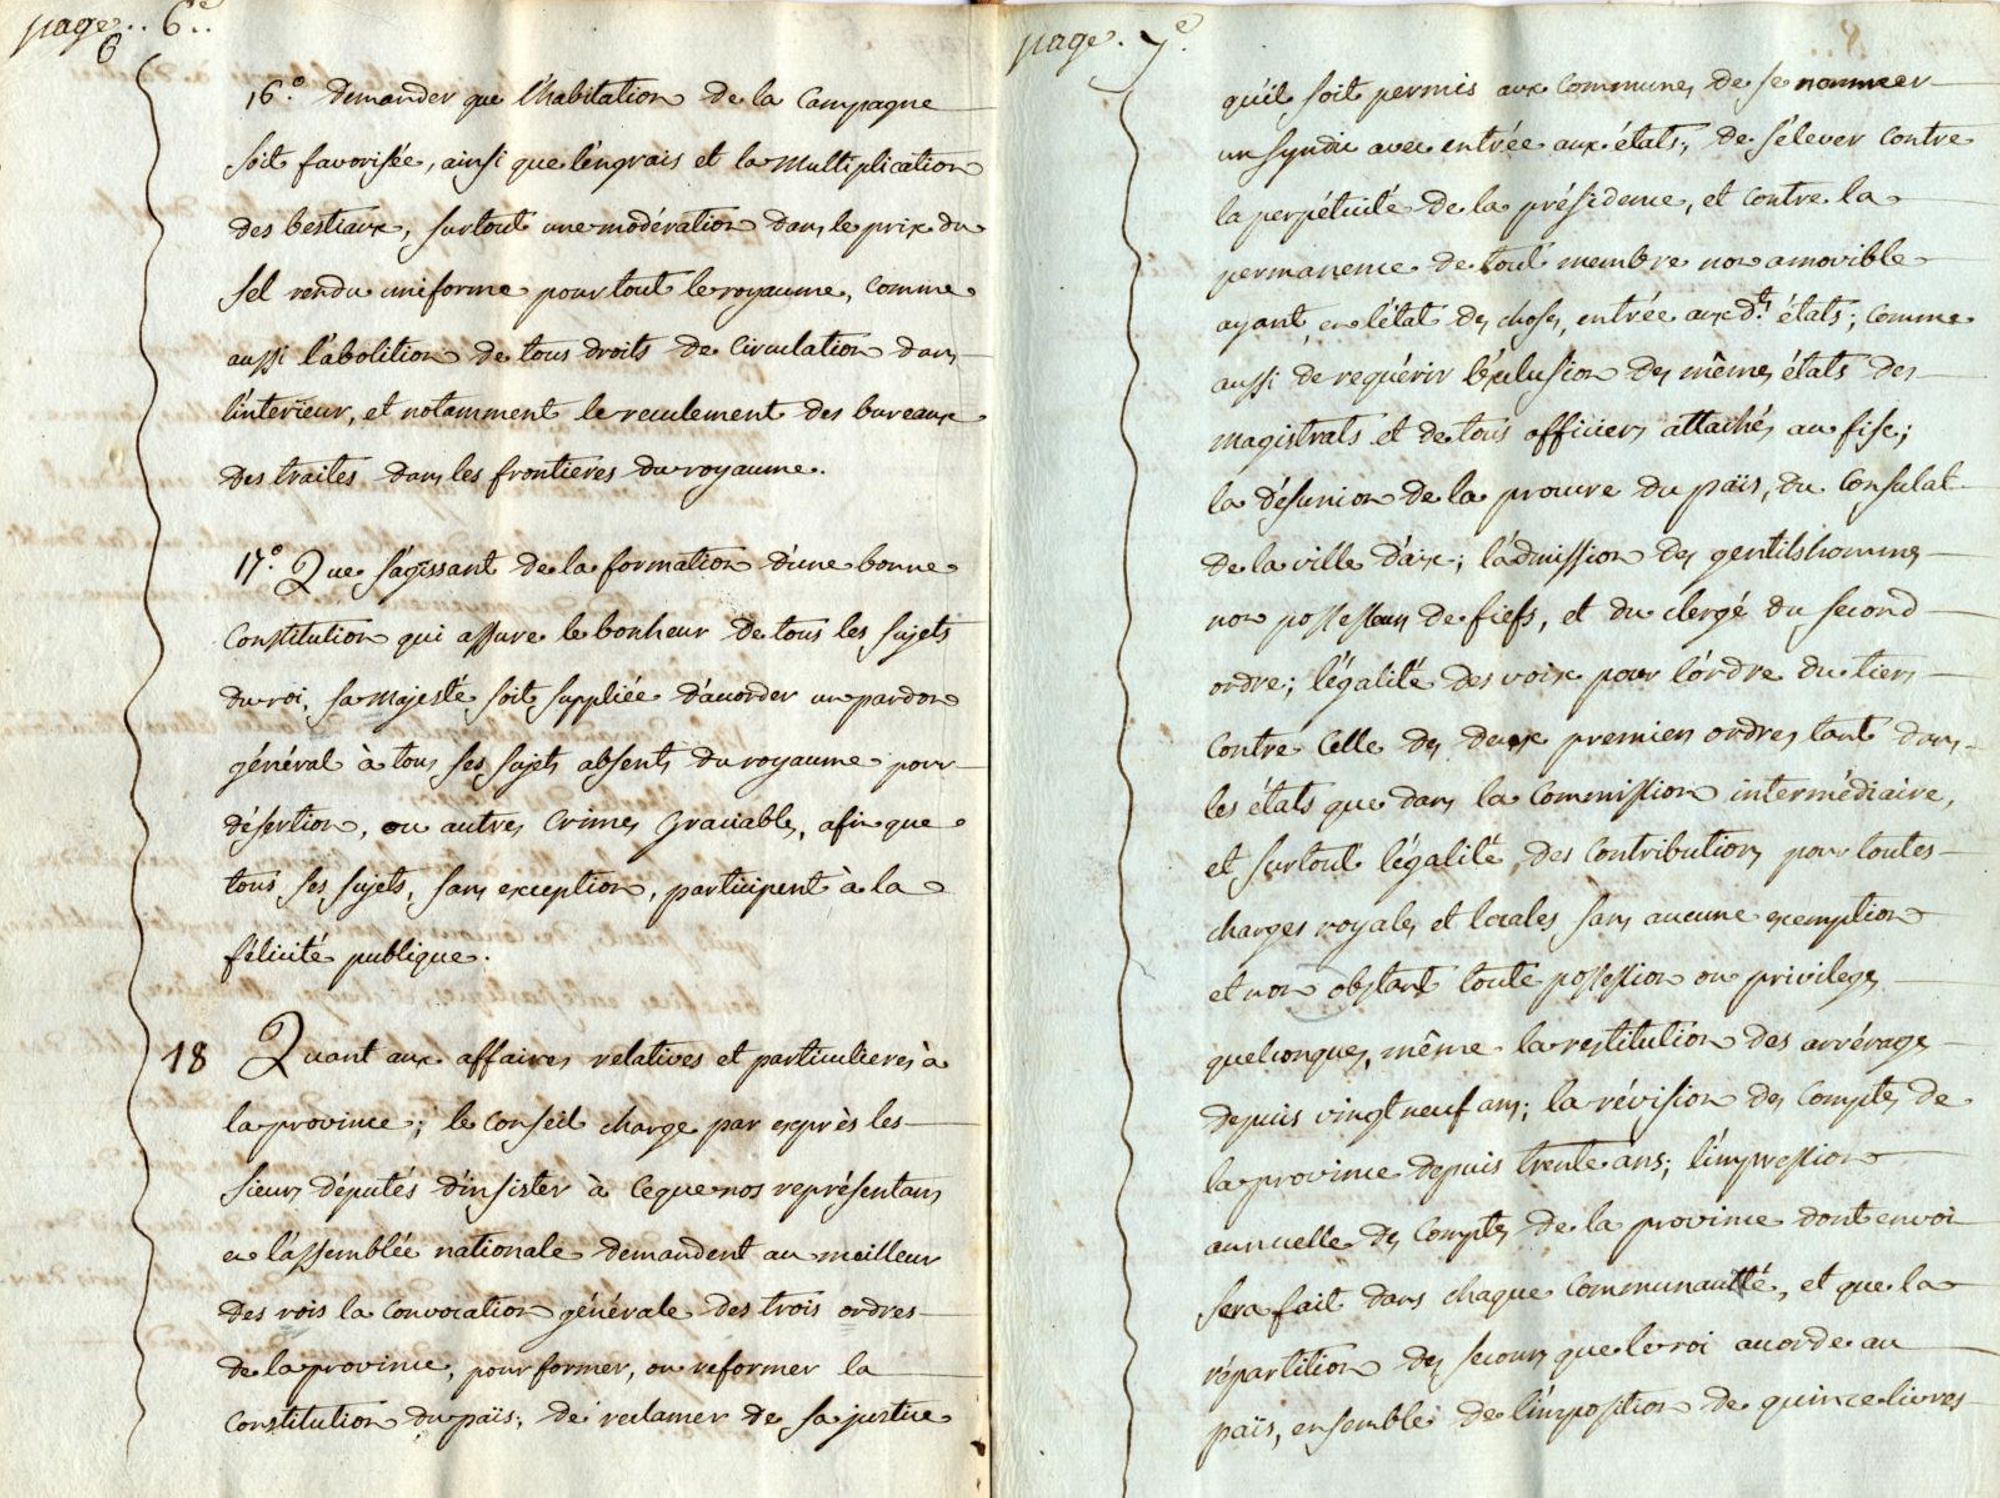 page.. 6.e..
6
16.° Demander que l'habitation de la Campagne
soit favorisée, ainsi que l'engrais et la multiplication
des bestiaux, surtout une modération dans le prix du
sel rendu uniforme pour tout le royaume, comme
aussi l'abolition de tous droits de Circulation dans
l'intérieur, et notamment le reculement des bureaux
des traites dans les frontieres du royaume.
17.° Que s'agissant de la formation d'une bonne
Constitution qui assure le bonheur de tous les sujets
du roi, sa majesté soit suppliée d'accorder un pardon
général à tous ses sujets absents du royaume pour
désertion, ou autres Crimes graciables, afin que
tous ses sujets, sans exception, participent à la
félicité publique.
18 Quant aux affaires relatives et particulieres à
la province; le Conseil charge par exprès les
sieurs députés d'insister à ce que nos représentans
en l'assemblée nationale demandent au meilleur
des rois la Convocation générale des trois ordres
de la province, pour former, ou reformer la
Constitution du païs; de reclamer de sa justice
page. 7.e
qu'il soit permis aux Communes de se nommer
un syndic avec entrée aux états; de s'élever Contre
la perpétuité de la présidence, et Contre la
permanence de tout membre non amovible
ayant, en l'état des choses, entrée aux dts. états; Comme
aussi de requérir l'exclusion des mêmes états des
magistrats et de tous officiers attachés au fisc;
la désunion de la procure du païs, du Consulat
de la ville d'aix; l'admission des gentilshommes
non possesseurs de fiefs, et du clergé du second
ordre; l'égalité des voix pour l'ordre du tiers
Contre Celle des deux premiers ordres tant dans
les états que dans la Commission intermédiaire,
et surtout l'égalité des Contributions pour toutes
charges royales et locales sans aucune exemption
et non obstant toute possession ou privileges
quelconques, même la restitution des arrérages
depuis vingt neuf ans; la révision des Comptes de
la province depuis trente ans; l'impression
annuelle des Comptes de la province dont envoi
sera fait dans chaque Communauté, et que la
répartition des secours que le roi accorde au
païs, ensemble de l'imposition de quinze livres